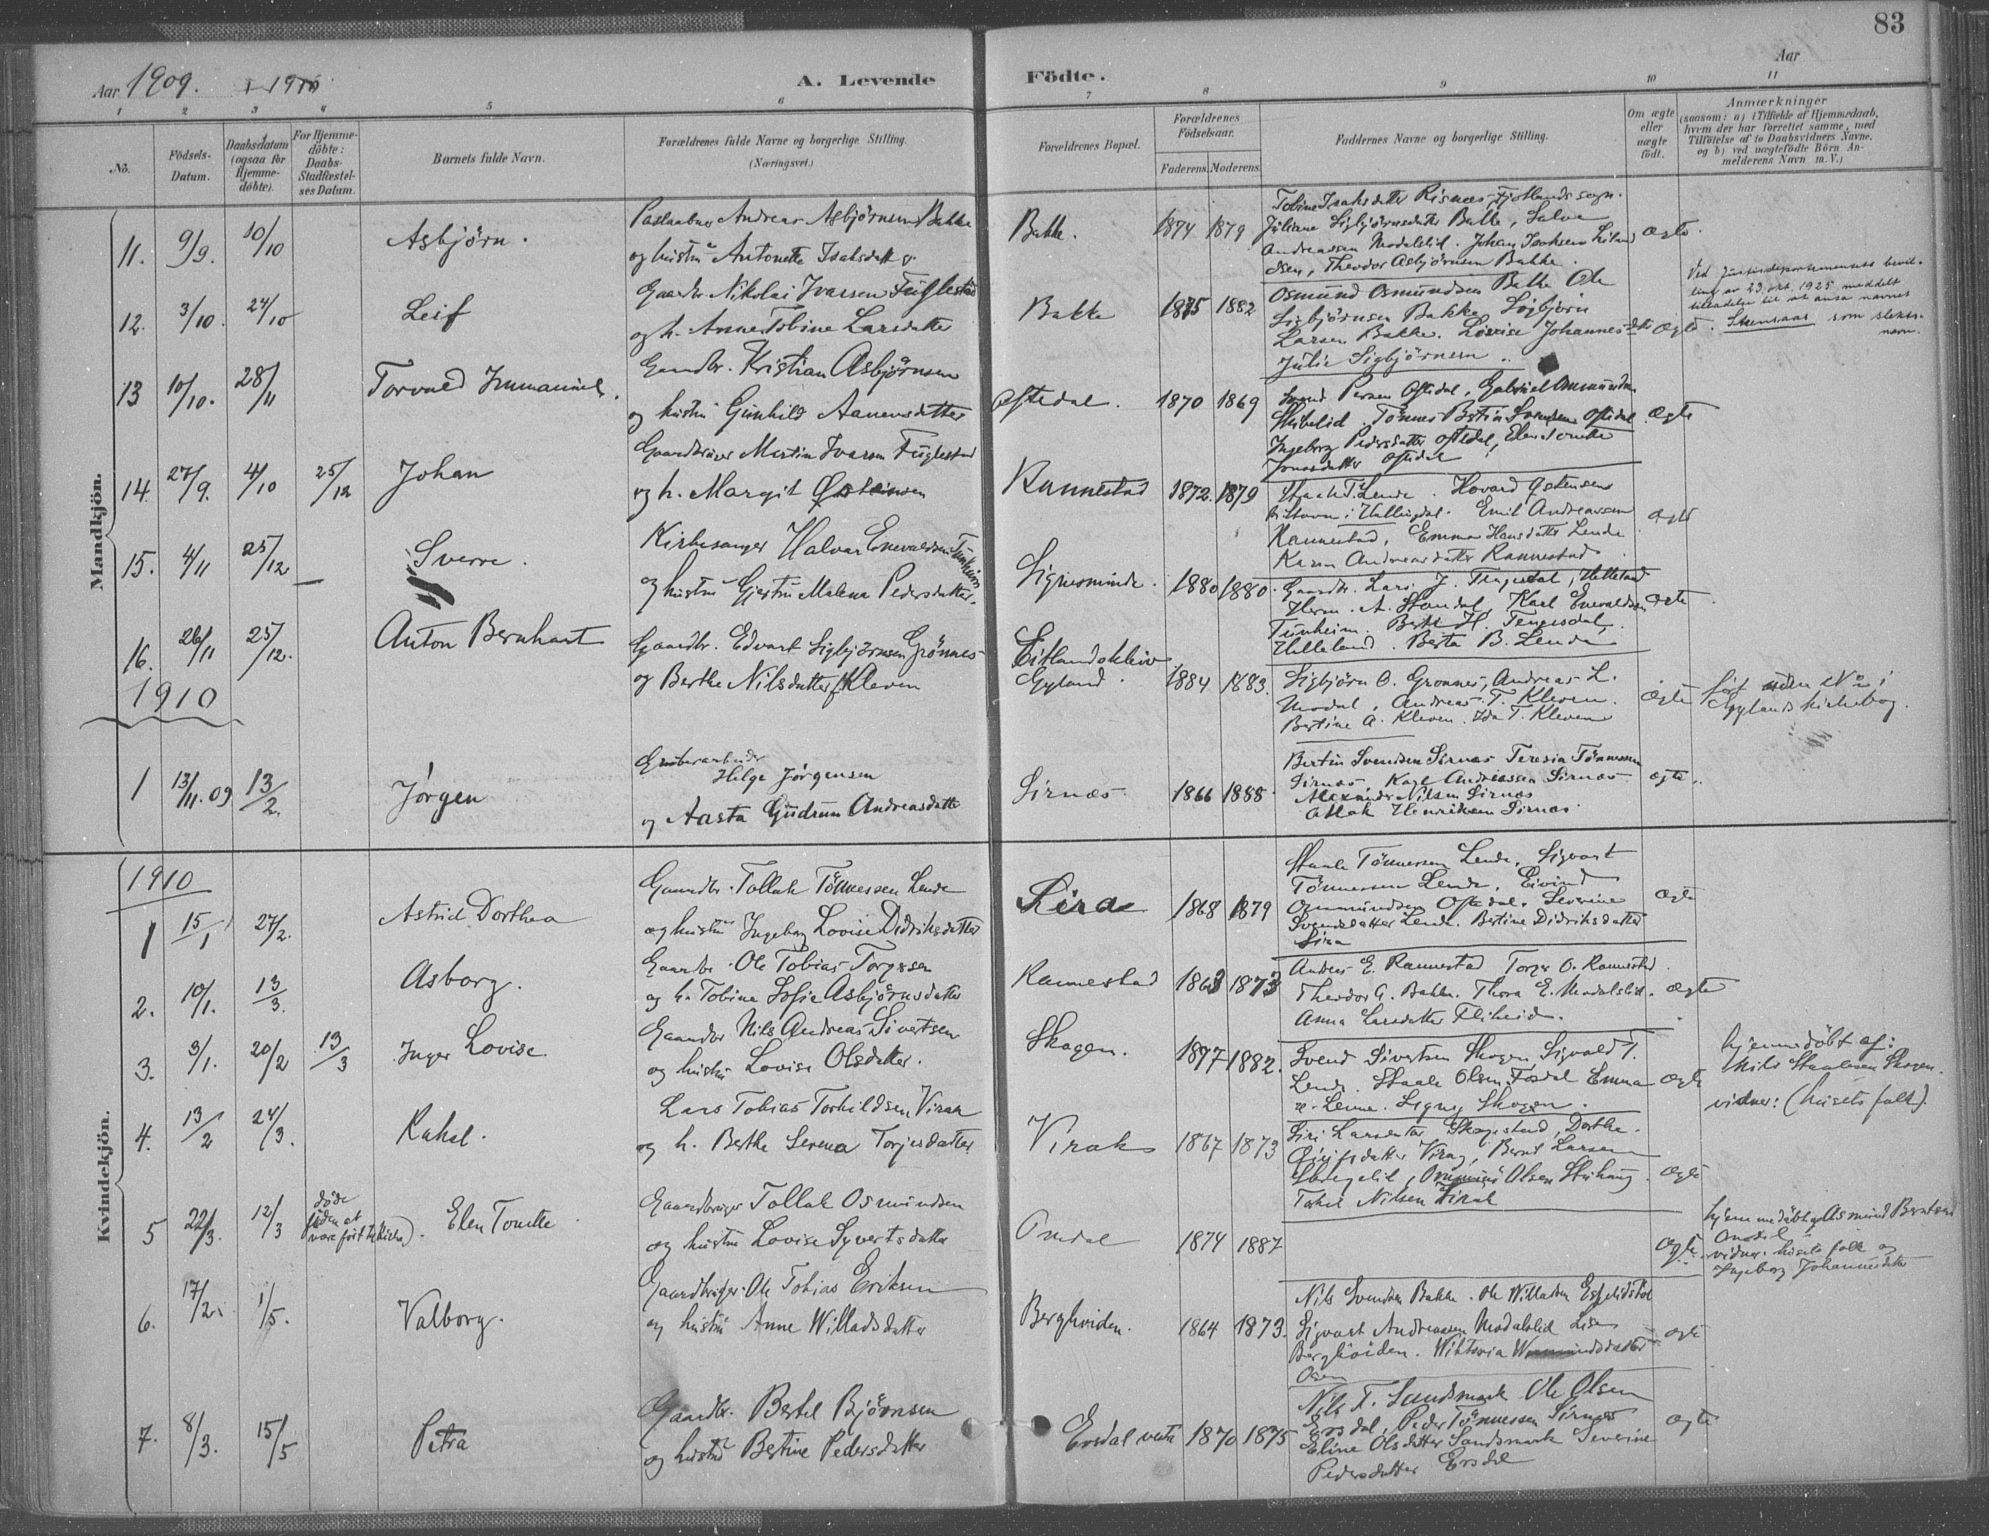 83
Aar 1909. 1910
A. Levende Födte.
Aar
1 2 3 4 5 6 7 8 9 10 11
No.
Födsels-Datum.
Daabsdatum (ogsaa for Hjemme-döbte).
For Hjemme-döbte: Daabs-Stadfæstel-ses Datum.
Barnets fulde Navn.
Forældrenes fulde Navne og borgerlige Stilling. (Næringsvei.)
Forældrenes Bopæl.
Forældrenes Födselsaar.
Faderens. Moderens.
Faddernes Navne og borgerlige Stilling.
Om ægte eller uægte födt.
Anmærkninger (saasom: a) i Tilfælde af Hjemmedaab, hvem der har forrettet samme, med Tilföielse af to Daabsvidners Navne. og b) ved uægtefödte Börn An-melderens Navn m. V.)
Mandkjön.
11. 9/9. 10/10 Asbjörn. Andreas Asbjörnsen Bakke
og hustru Antonette Isaksdatter
Bakke. 1874 1879
Tobine Isaksdatter Risnæs, Fjotlands sogn.
Juliane Sigbjörnsdatter Bakke, Salve
Andreassen Modalslid. Johan Isaksen
Theodor Asbjörnsen Bakke.
Ægte.
12. 3/10. 24/10 Leif
Gaardbr. Nikolai Ivarsen Fuglestad
og h. Anne Tobine Larsdatter
Bakke 1875 1882
Osmund Osmundsen Bakke Ole
Sigbjörnsen Bakke Sigbjörn
Larsen Bakke. Lovise Johannes-dtr
Julie Sigbjörnsen
Ægte.
Ved Justisdepartementets bevil-
ling av 23. okt. 1925 meddelt
tilladelse til at anta navnet
Stensaas som slekts-
navn.
13 10/10. 28/11 Torvald Immanuel.
Gaardbr. Kristian Asbjörnsen
og hustru Gunhild Aanensdatter
Oftedal. 1870 1869
Svend Persen Oftedal, Gabriel Ommundsen
Skibelid, Tönnes Bertin Svendsen Oftedal
Ingeborg Pedersdatter Oftedal, Elen Tonette
Jonasdatter Oftedal
Ægte
14. 27/9. 4/10 25/12 Johan
Gaardbruger Martin Ivarsen Fuglestad
og h. Margit Östensen
Rannestad 1872. 1879
Staale T. Lende. Hovard Östensen
i Hallingdal. Emil Andreassen
Rannestad, Emma Hansdatter Lende
Karen Andreasdatter Rannestad
ægte
15. 4/11 25/12 Sverre.
Kirkesanger Halvar Enevaldsen Tunheim
og hustru Gjertru Malena Pedersdatter.
Signesminde. 1880 1880.
Gaardbr. Lars J. Tengesdal, Helleland
Herm. A. Stendal, Karl Enevaldsen
Tunheim. Berte H. Tengesdal,
Helleland. Berta B. Lende
ægte
16. 26/11 25/12. Anton Bernhart
Gaardbr. Edvart Sigbjörnsen Grönnes
og Berthe Nilsdatter f. Kleven
Eitlandskleiv
Gyland. 1884 1883.
Sigbjörn O. Gronnes, Andreas L.
Modal, Andreas T. Kleven.
Bertine A. Kleven. Ida T. Kleven
Ægte
fört uden No i
Gylands kirkebog.
1910
1 13/11.09 13/2. Jörgen
Grubearbeider
Helge Jörgensen
og Aasta Gudrun Andreasdatter
Sirnæs 1866 1888
Bertin Svendsen Sirnæs Teresia Tönnessen
Sirnæs. Karl Andreassen Sirnæs
Alexander Nilsen Sirnæs
Aslak Henriksen Sirnæs
ægte.
Kvindekjön.
1910
1 15/1 27/2. Astrid Dorthea
Gaardbr. Tollak Tönnessen Lende
og hustru Ingeborg Lovise Didriksdatter
Sira 1868 1879
Staale Tönnessen Lende, Sigvart
Tönnessen Lende, Eivind
Ommundsen Oftedal, Severine
Svendsdatter Lende. Bertine Didriksdatter
Sira
ægte
2. 10/1. 13/3. Asborg.
Gaardbr. Ole Tobias Torgesen
og h. Tobine Sofie Asbjörnsdatter
Rannestad 1863 1873
Anders E. Rannestad Torger O. Rannestad.
Theodor A. Bakke. Thora E. Modalslid.
Anna Larsdatter
ægte
3. 3/1. 20/2 13/3 Inger Lovise.
Gaardbr Nils Andreas Sivertsen
og hustru Lovise Olsdatter.
Skogen. 1877 1882.
Svend Sivertsen Skogen Sigvald T.
Lende. Staale Olsen Fosdal Emma
Lende. Signe Skogen.
ægte
hjemmedöbt af:
Nils Staalesen Skogen.
vidner: (husets folk).
4. 13/2 24/3. Rakel.
Lars Tobias Torkildsen Virak
og h. Berthe Serena Torjesdatter
Virak 1867 1873
Siri Larsdatter Skogestad, Dorthe
Virag, Bernt Larsen
Olsen
Torkel Nilsen Virak
ægte
5 22/3. 12/3 döde uden at være fört til kirke). Elen Tonette
Gaardbruger Tollak Osmundsen
og hustru Lovise Syvertsdatter
Omdal 1874 1887
ægte.
hjemmedöbt af Asmund Berntsen
Omdal
vidner: husets folk og
Ingeborg Johannesdatter
6. 17/2. 1/5. Valborg.
Gaardbruger Ole Tobias Eriksen
og hustru Anne Willadsdatter
Berghviden. 1864 1873.
Nils Svendsen Bakke. Ole Willadsen
Sigvart Andreassen Modalslid Lise
Berghviden. Wiktoria
Osen
ægte
7. 8/3. 15/5 Petra
Gaardbr. Bertel Björnsen
og hustru Bertine Pedersdatter
Ersdal vestre 1870 1875
Nils T. Sandsmark Ole Olsen
Ersdal, Peder Tönnessen Sirnæs
Eline Olsdatter Sandsmark Severine
Pedersdatter Ersdal
ægte